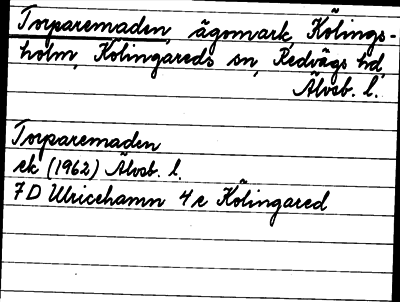 Torparemaden, ägomark Kölings-
holm, Kölingareds sn, Redvägs hd,
Älvsb. l.
Torparemaden
ek (1962) Älvsb. l.
7D Ulricehamn 4e Kölingared